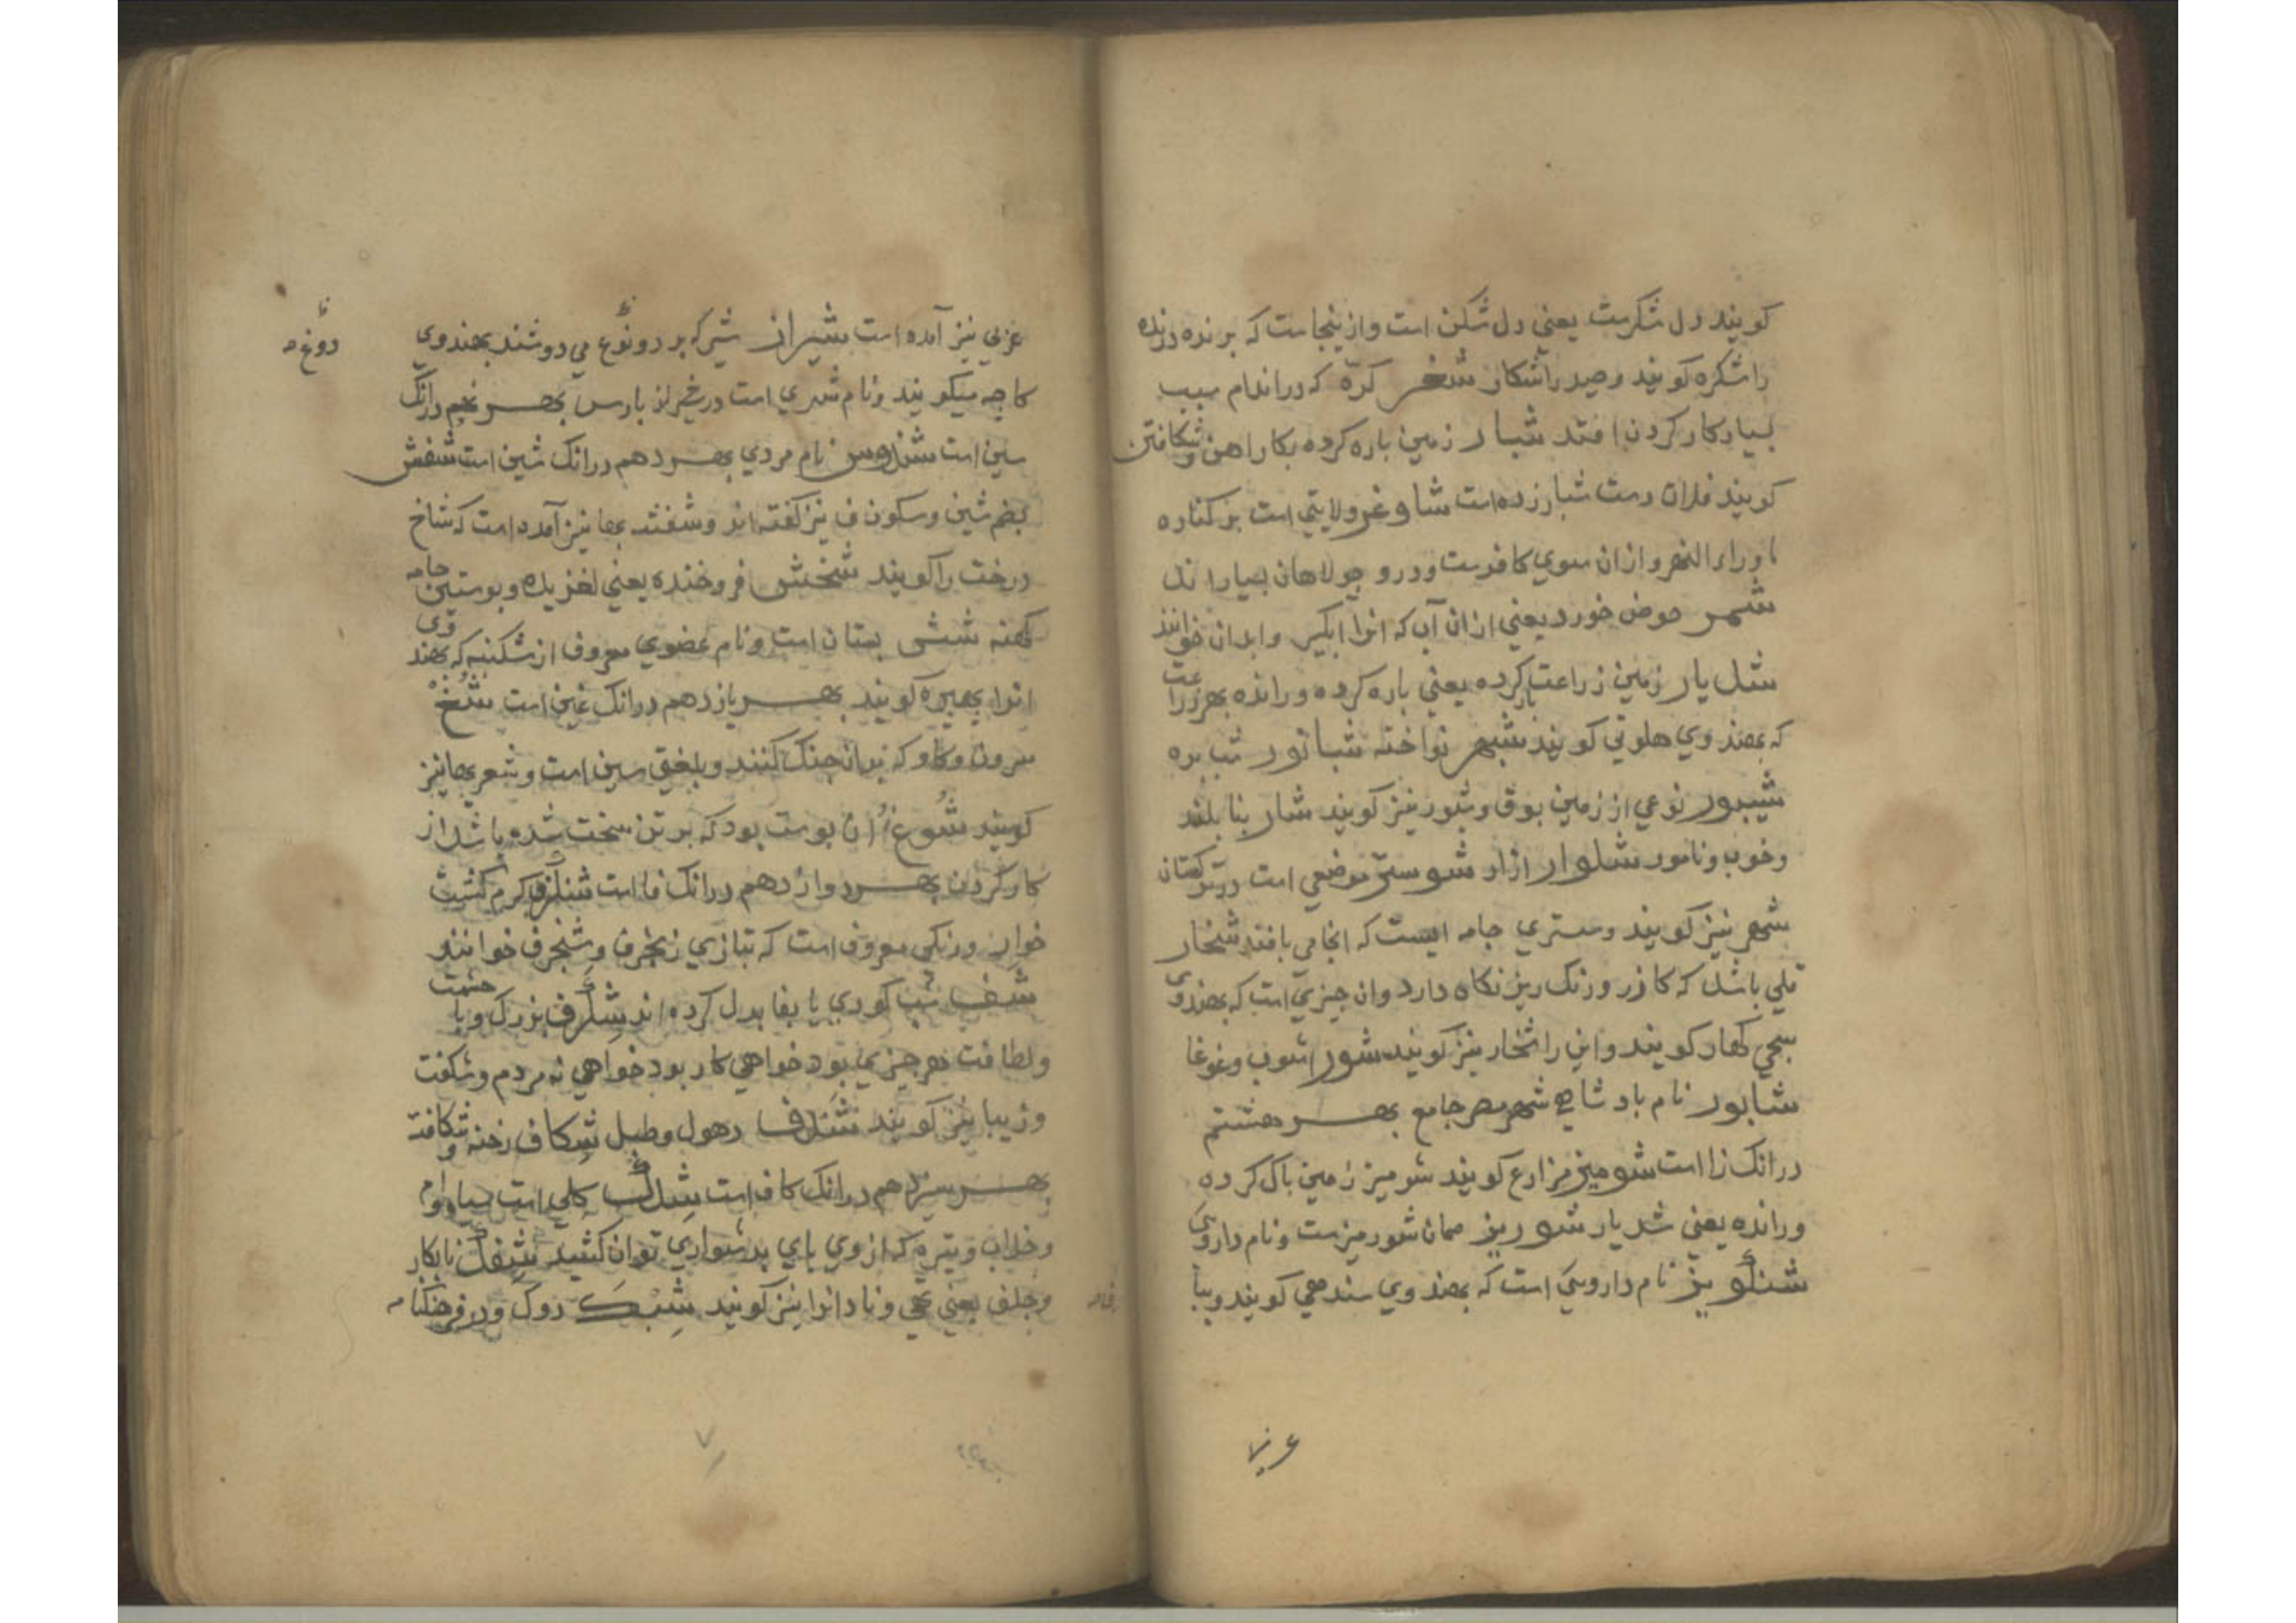 کویند دل شکرست یعنی دل شکن است و ازینجاست که برنده درنده
را شکره کویند و صید را شکار شخر کرّه که در اندام سبب
بسیار کار کردن افتد شیار زمین باره کرده بکار اهن و شکافتن
کویند فلان دست شیار زده است شاوغر ولایتی است بر کناره
ماوراء النهر و ازان سوی کافرست و درو جولاهان بسیار اند
شمر حوض خورد یعنی ازان آب که انرا ابکیر و ابدان خوانند
شدیار زمین زراعت کرده یعنی باره کرده و رانده بهر زراعت
که بهندوی هلوتی کویند شیهر نواخته شبانور شب بره
شیبور نوعی از زمین بوق و شبور نیز کویند شار بنا بلند
و خوب و نامور شلوار ازار شوستر موضعی است در ترکستان
شهر نیز کویند و ستری جامه ایست که انجا می بافند شخار
قلی باشد که کازر و رنک ریز نکاه دارد و ان چیزی است که بهندوی
سجی کهار کویند و این را اشخار نیز کویند شور اشوب و غوغا
شابور نام بادشاهی شهر مصر جامع بهر هشتم
درانک زا است شومیز مزارع کویند شومیز زمین باک کرده
و رانده یعنی شدیار شوریز همان شورمیزست و نام داروی
شنکویز نام داروی است که بهندوی سندهی کویند و ببا
عربی
عربی نیز آمده است شیراز شیر که بر دوغ می دوشند بهندوی
دوغ
کاجه میکویند و نام شهری است در شیراز بارس بهر نهم درانک
سین است شندوس نام مردی بهر دهم درانک شین است شفش
بضم شین و سکون ف نیز کفته اند و شفشه بها نیز آمده است که شاخ
درخت را کویند شخش فروخنده یعنی لغزیده و بوستین جامه
کهنه شش بستان است و نام عضوی معروف از شکنبه که بهندوی
انرا بهیره کویند بهر یازدهم درانک غین است شغ
سرون و کاو که بدان جنک کنند و بلغتی سین است و شعر بها نیز
کویند شوغ ان بوست بود که بر تن سخت شده باشد از
کار کردن بهر دوازدهم درانک فا است شنکرف کرم کشت
خوار و رنکی معروف است که بتازی زنجرف و شنجرف خوانند
شف شب کوری با بفا بدل کرده اند شکرف بزرک و با حشمت
و لطافت هر چیزی بود خواهی کار بود خواهی نه مردم و شکفت
و زیبا نیز کویند شندف دهول و طبل شکاف رخنه و شکافته
بهر سیزدهم درانک کاف است شلک کلی است سیاه و
و خلاب و تیره که از وی بای بدشواری توان کشید شفک نابکار
و جلف یعنی تهی و نادانرا نیز کویند شبک دوک و در فرهنکنامه